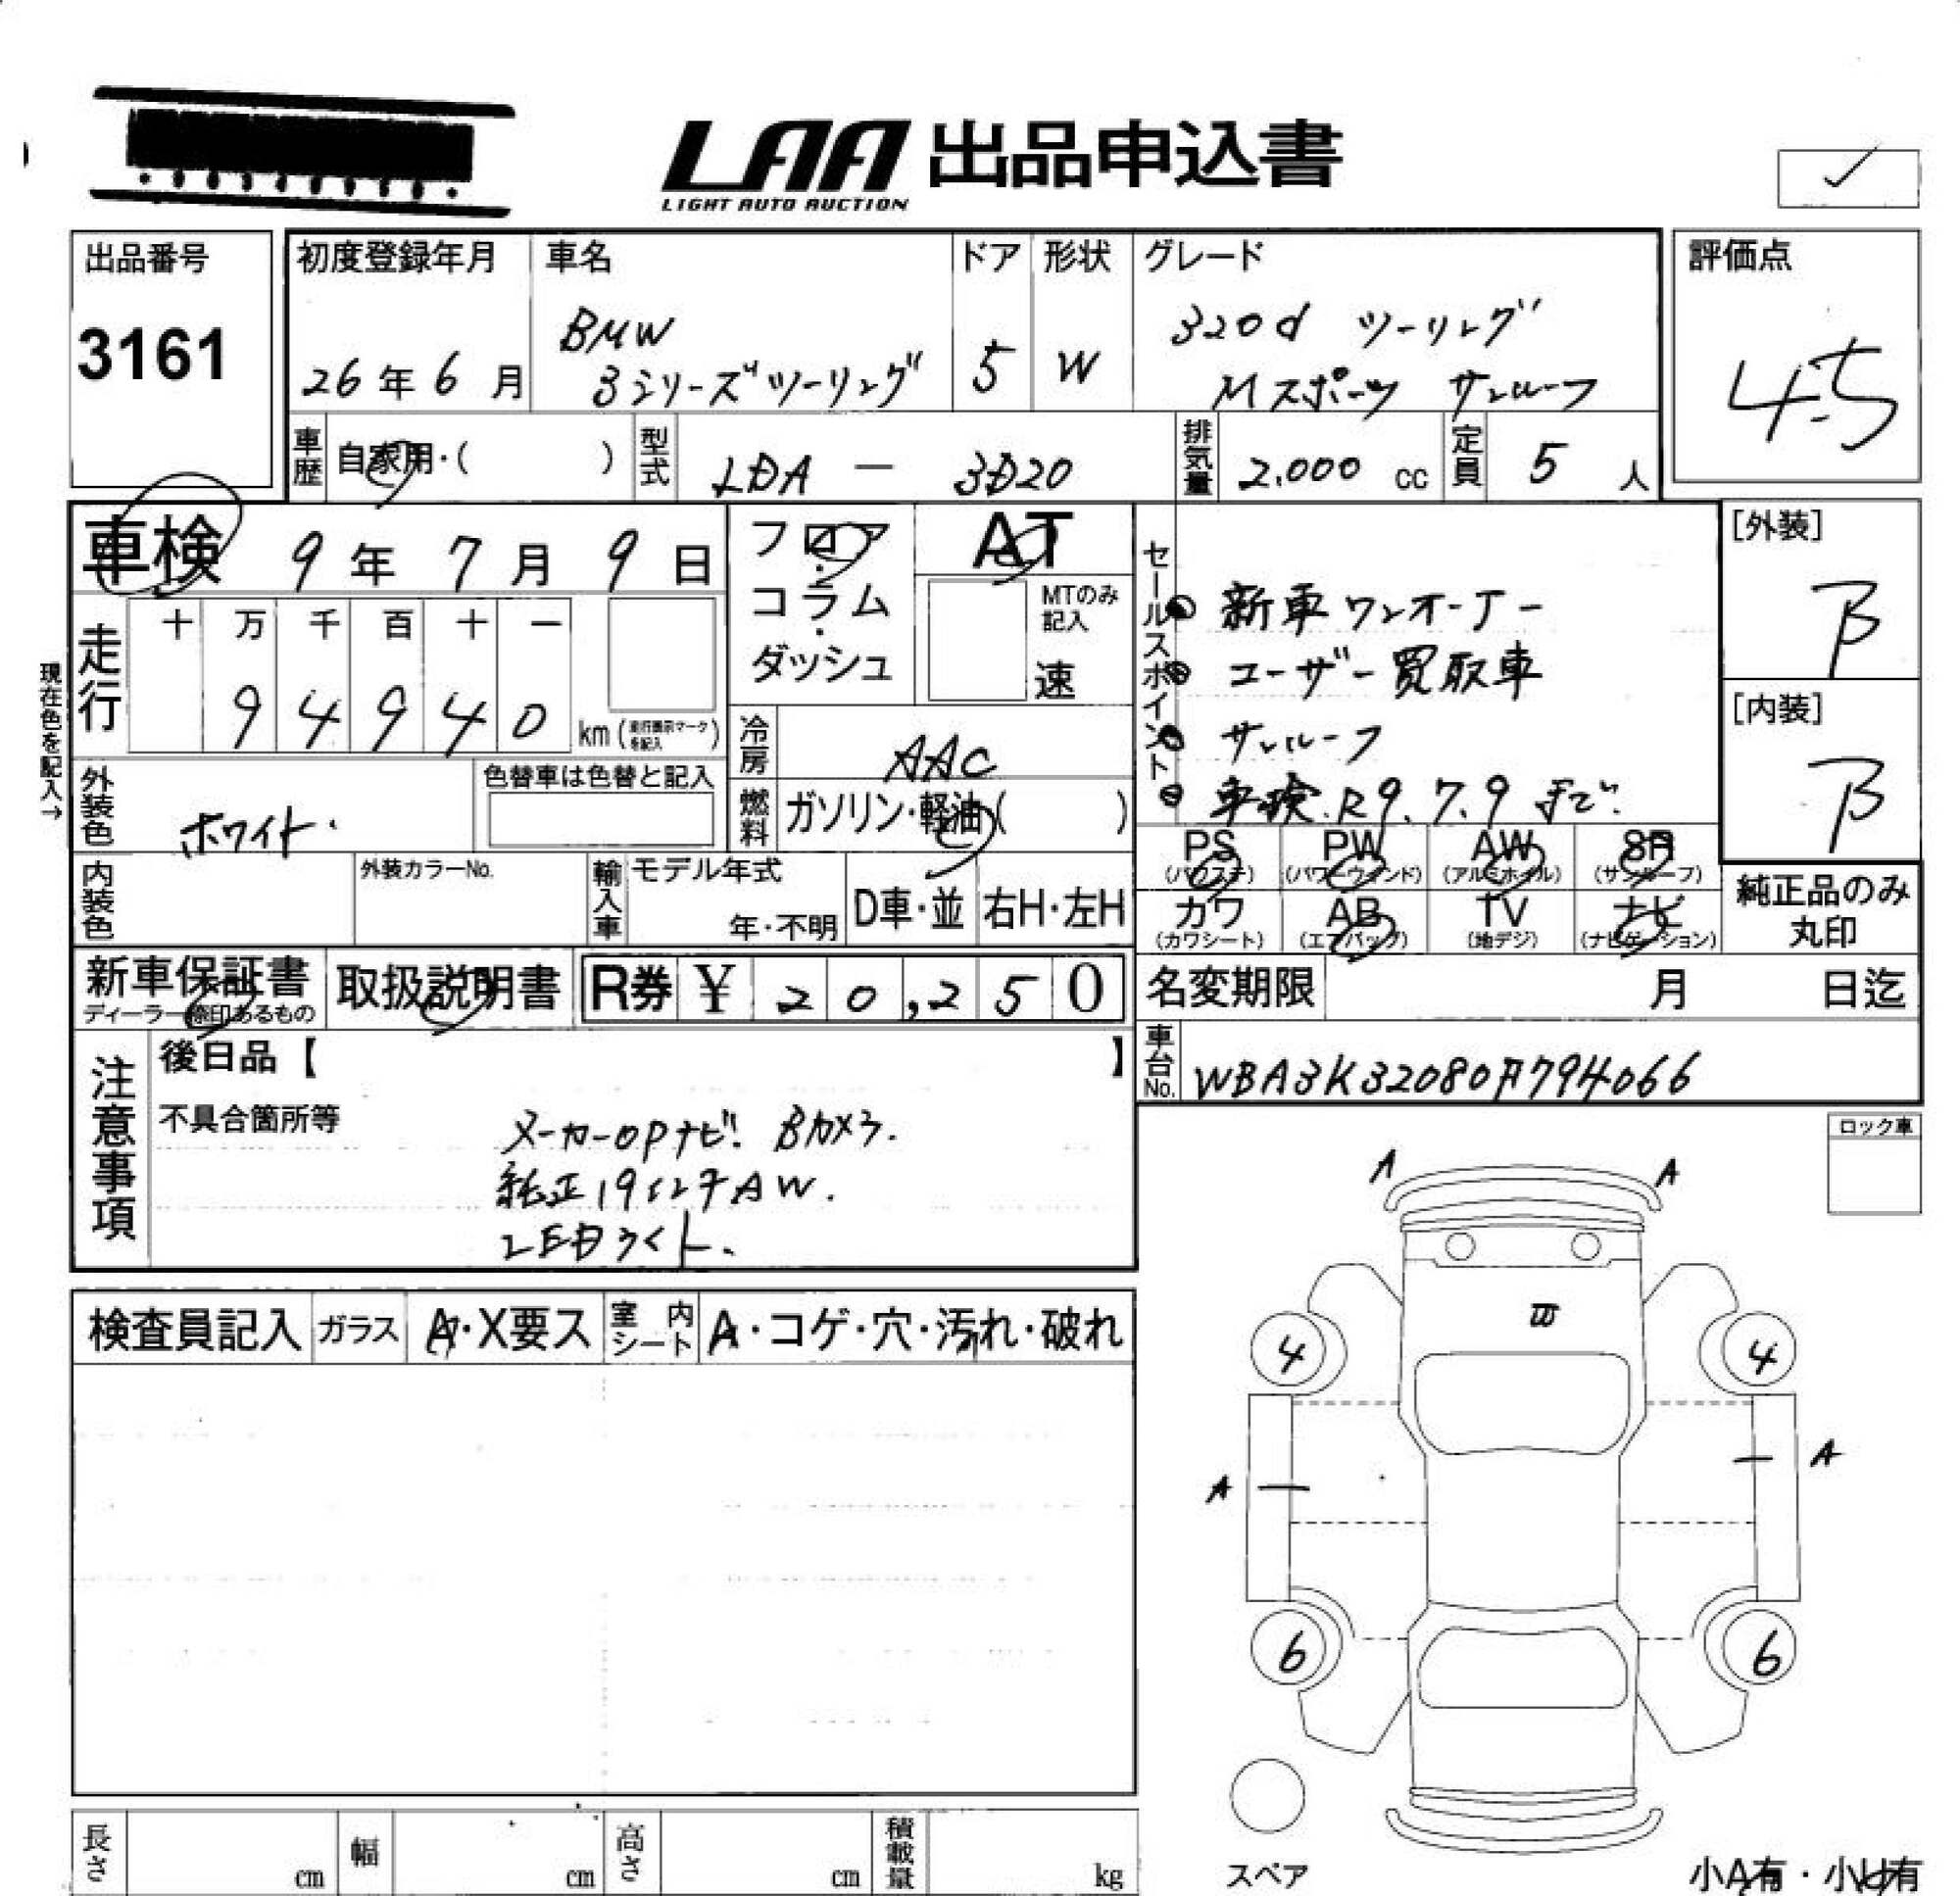 LAA 出品申込書
LIGHT AUTO AUCTION
出品番号
3161
初度登録年月
26年6月
車名
BMW
3シリーズツーリング
ドア
5
形状
W
グレード
320d ツーリング
Mスポーツ サンルーフ
評価点
4.5
車歴 自家用・( )
型式 LDA - 3D20
排気量 2.000 cc
定員 5 人
車検 9年7月9日
フロア・コラム・ダッシュ
AT
MTのみ記入
速
現在色を記入→
走行
十 万 千 百 十 一
9 4 9 4 0 km (走行表示マークを記入)
冷房 AAC
外装色 ホワイト
色替車は色替と記入
燃料 ガソリン・軽油( )
内装色
外装カラーNo.
輸入車
モデル年式
年・不明
D車・並
右H・左H
セールスポイント
新車ワンオーナー
ユーザー買取車
サンルーフ
車検.R9.7.9まで.
[外装]
B
[内装]
B
PS (パワステ)
PW (パワーウィンド)
AW (アルミホイル)
SR (サンルーフ)
カワ (カワシート)
AB (エアバッグ)
TV (地デジ)
ナビ (ナビゲーション)
純正品のみ
丸印
新車保証書
ディーラー捺印あるもの
取扱説明書
R券 ¥ 20,250
名変期限 月 日迄
車台No. WBA3K32080F794066
注意事項
後日品【 】
不具合箇所等
メーカーOPナビ. Bカメラ.
純正19インチAW.
LEDライト.
ロック車
検査員記入
ガラス A・X要ス
室内シート A・コゲ・穴・汚れ・破れ
A A
4 4
A A
6 6
スペア
小A有・小U有
長さ cm
幅 cm
高さ cm
積載量 kg